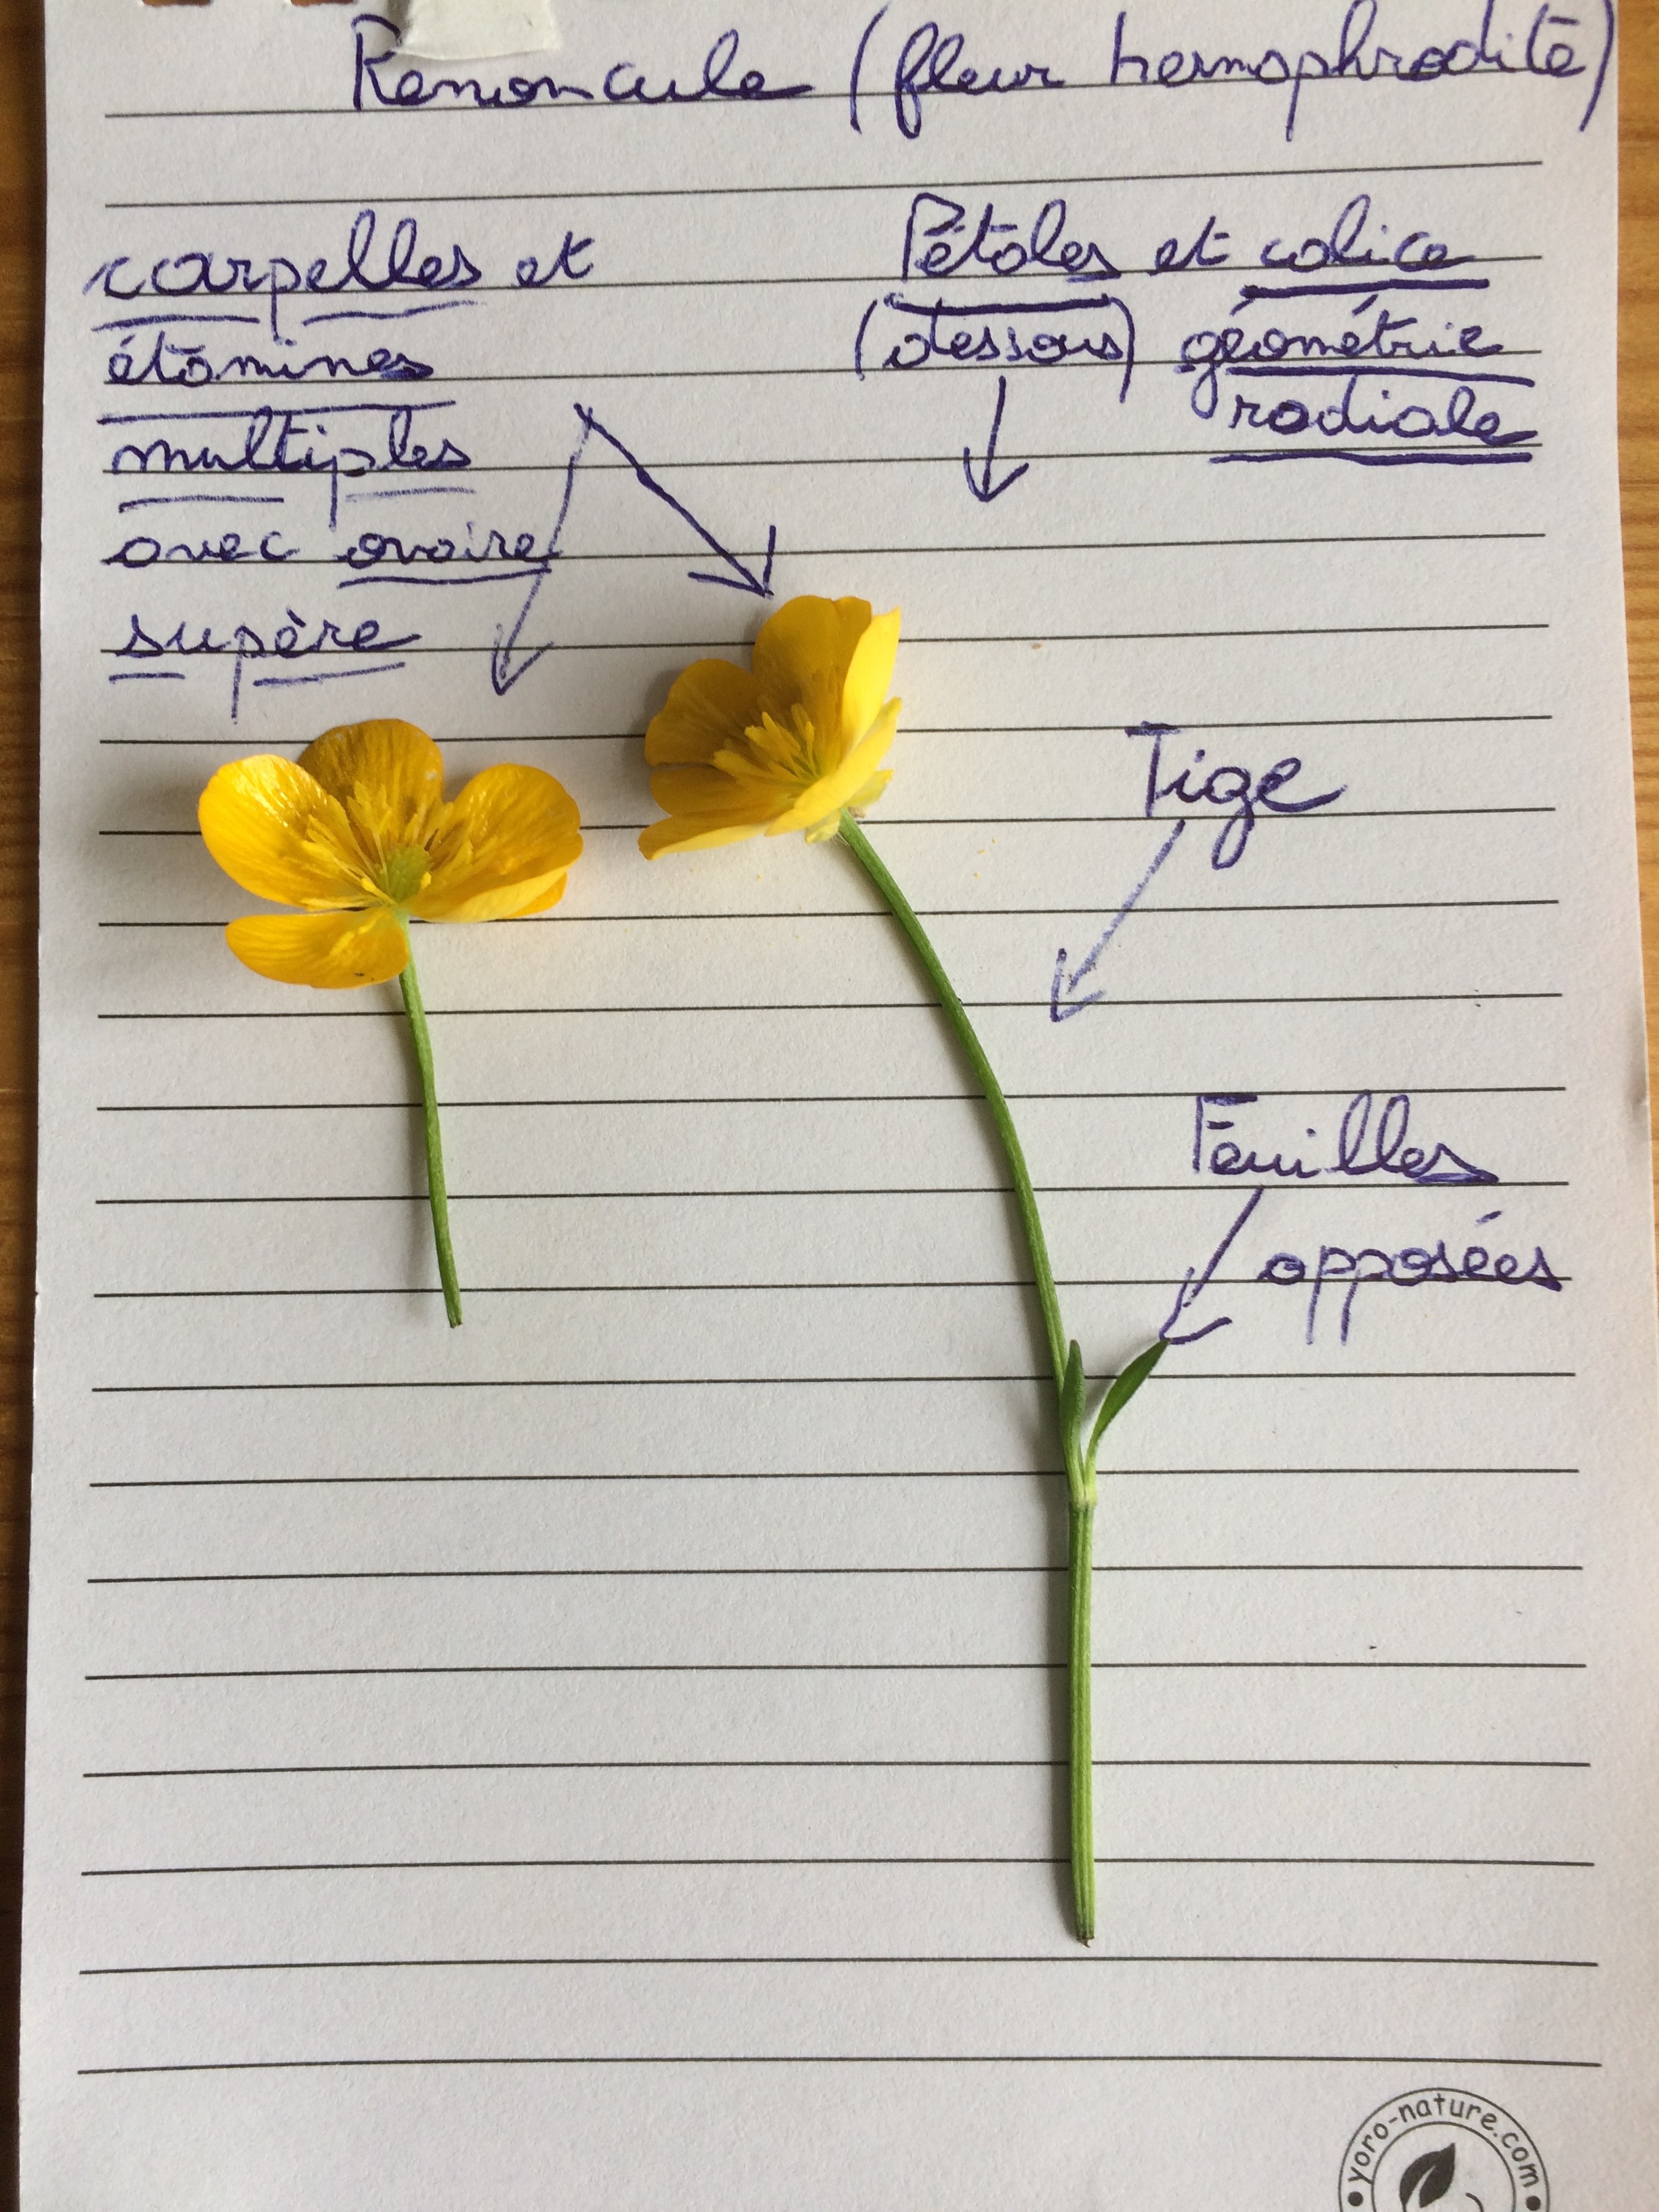 Renoncule (fleur hermaphrodite)
carpelles et
étamines
multiples
avec ovaire
supère
Pétales et calice
(dessous) géométrie
radiale
Tige
Feuilles
opposées
yoro-nature.com